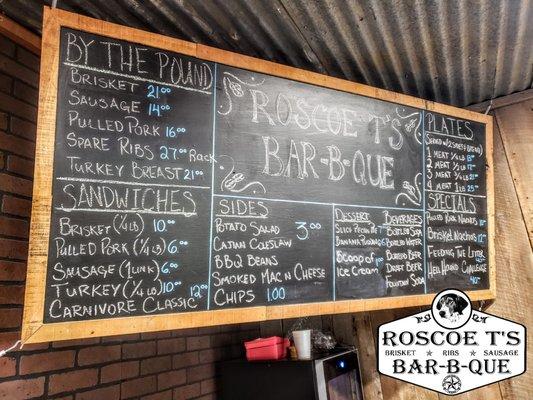 BY THE POUND
BRISKET 21.00
SAUSAGE 14.00
PULLED PORK 16.00
SPARE RIBS 27.00 RACK
TURKEY BREAST 21.00
SANDWICHES
BRISKET (1/4 LB) 10.00
PULLED PORK (1/4 LB) 6.00
SAUSAGE (1 LINK) 6.00
TURKEY (1/4 LB) 10.00
CARNIVORE CLASSIC 12.00
ROSCOE T'S
BAR-B-QUE
SIDES
POTATO SALAD 3.00
CAJUN COLESLAW
BBQ BEANS
SMOKED MAC N CHEESE
CHIPS 1.00
DESSERT
SLICE PECAN PIE
BANANA PUDDING
SCOOP OF
ICE CREAM
BEVERAGES
BOTTLED SODA
BOTTLED WATER
BOTTLED BEER
DRAFT BEER
FOUNTAIN SODA
PLATES
1 MEAT
2 MEAT
3 MEAT
4 MEAT
SPECIALS
PULLED PORK NACHOS
BRISKET NACHOS 12
FEEDING THE LITTER
HELL HOUND CHALLENGE
ROSCOE T'S
BRISKET ★ RIBS ★ SAUSAGE
BAR-B-QUE